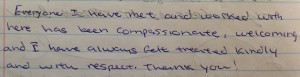 Everyone I have met and worked with
here has been compassionate, welcoming
and I have always felt treated kindly
and with respect. Thank you!